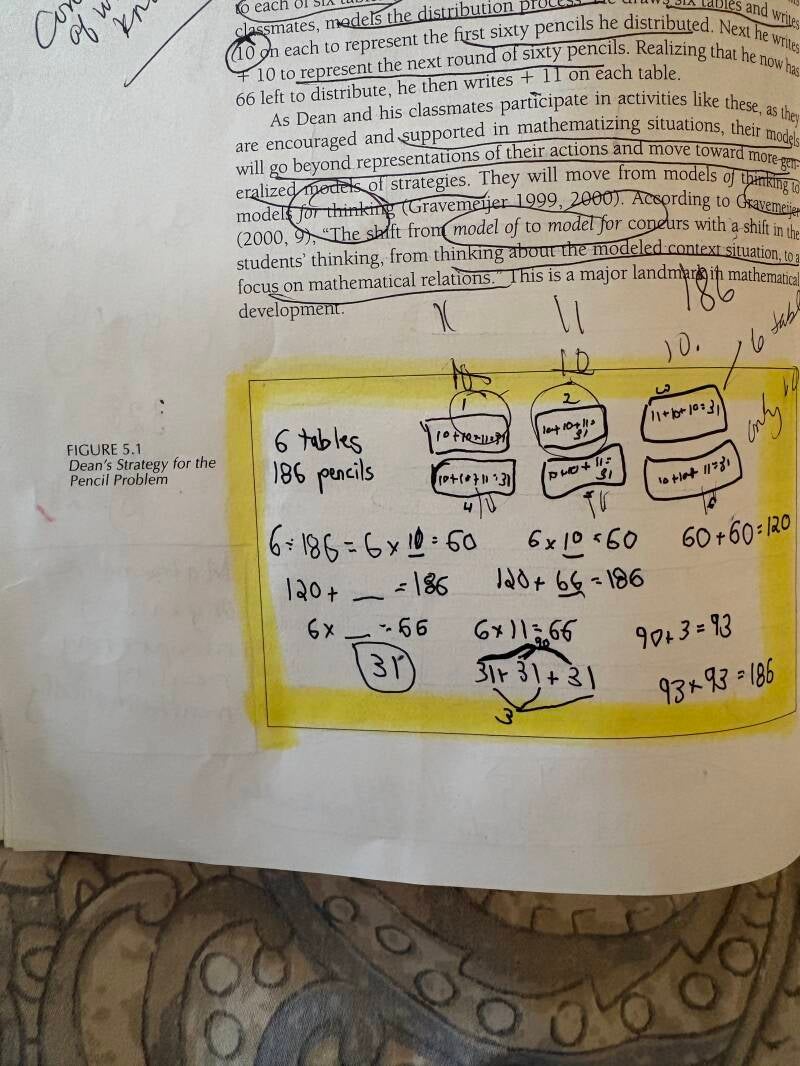 to each of six
classmates, models the distribution process. He draws six tables and writes
10 on each to represent the first sixty pencils he distributed. Next he writes
+ 10 to represent the next round of sixty pencils. Realizing that he now has
66 left to distribute, he then writes + 11 on each table.
As Dean and his classmates participate in activities like these, as they
are encouraged and supported in mathematizing situations, their models
will go beyond representations of their actions and move toward more gen-
eralized models of strategies. They will move from models of thinking to
models for thinking (Gravemeijer 1999, 2000). According to Gravemeijer
(2000, 9), "The shift from model of to model for concurs with a shift in the
students' thinking, from thinking about the modeled context situation, to a
focus on mathematical relations." This is a major landmark in mathematical
development.
186
11
10 10 10.
6 tabl
only 10
FIGURE 5.1
Dean's Strategy for the
Pencil Problem
6 tables
186 pencils
1 2 3
10+10+11=31 10+10+11=31 11+10+10=31
10+10+11=31 10+10+11=31 10+10+11=31
4 5 6
6÷186=6×10=60 6×10=60 60+60=120
120+__=186 120+66=186
6×__=66 6×11=66 90+3=93
90
31 31+31+31 93+93=186
3